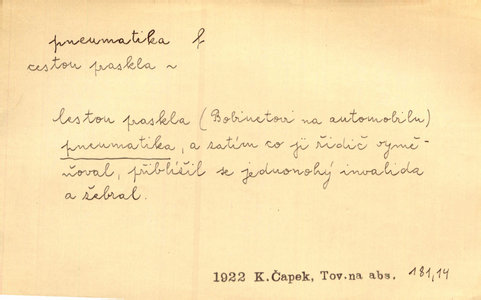 pneumatika f
cestou praskla ~
Cestou praskla (Bobinetovi na automobilu)
pneumatika, a zatím co ji řidič vymě-
ňoval, přiblížil se jednonohý invalida
a žebral.
1922 K.Čapek, Tov.na abs. 181,14